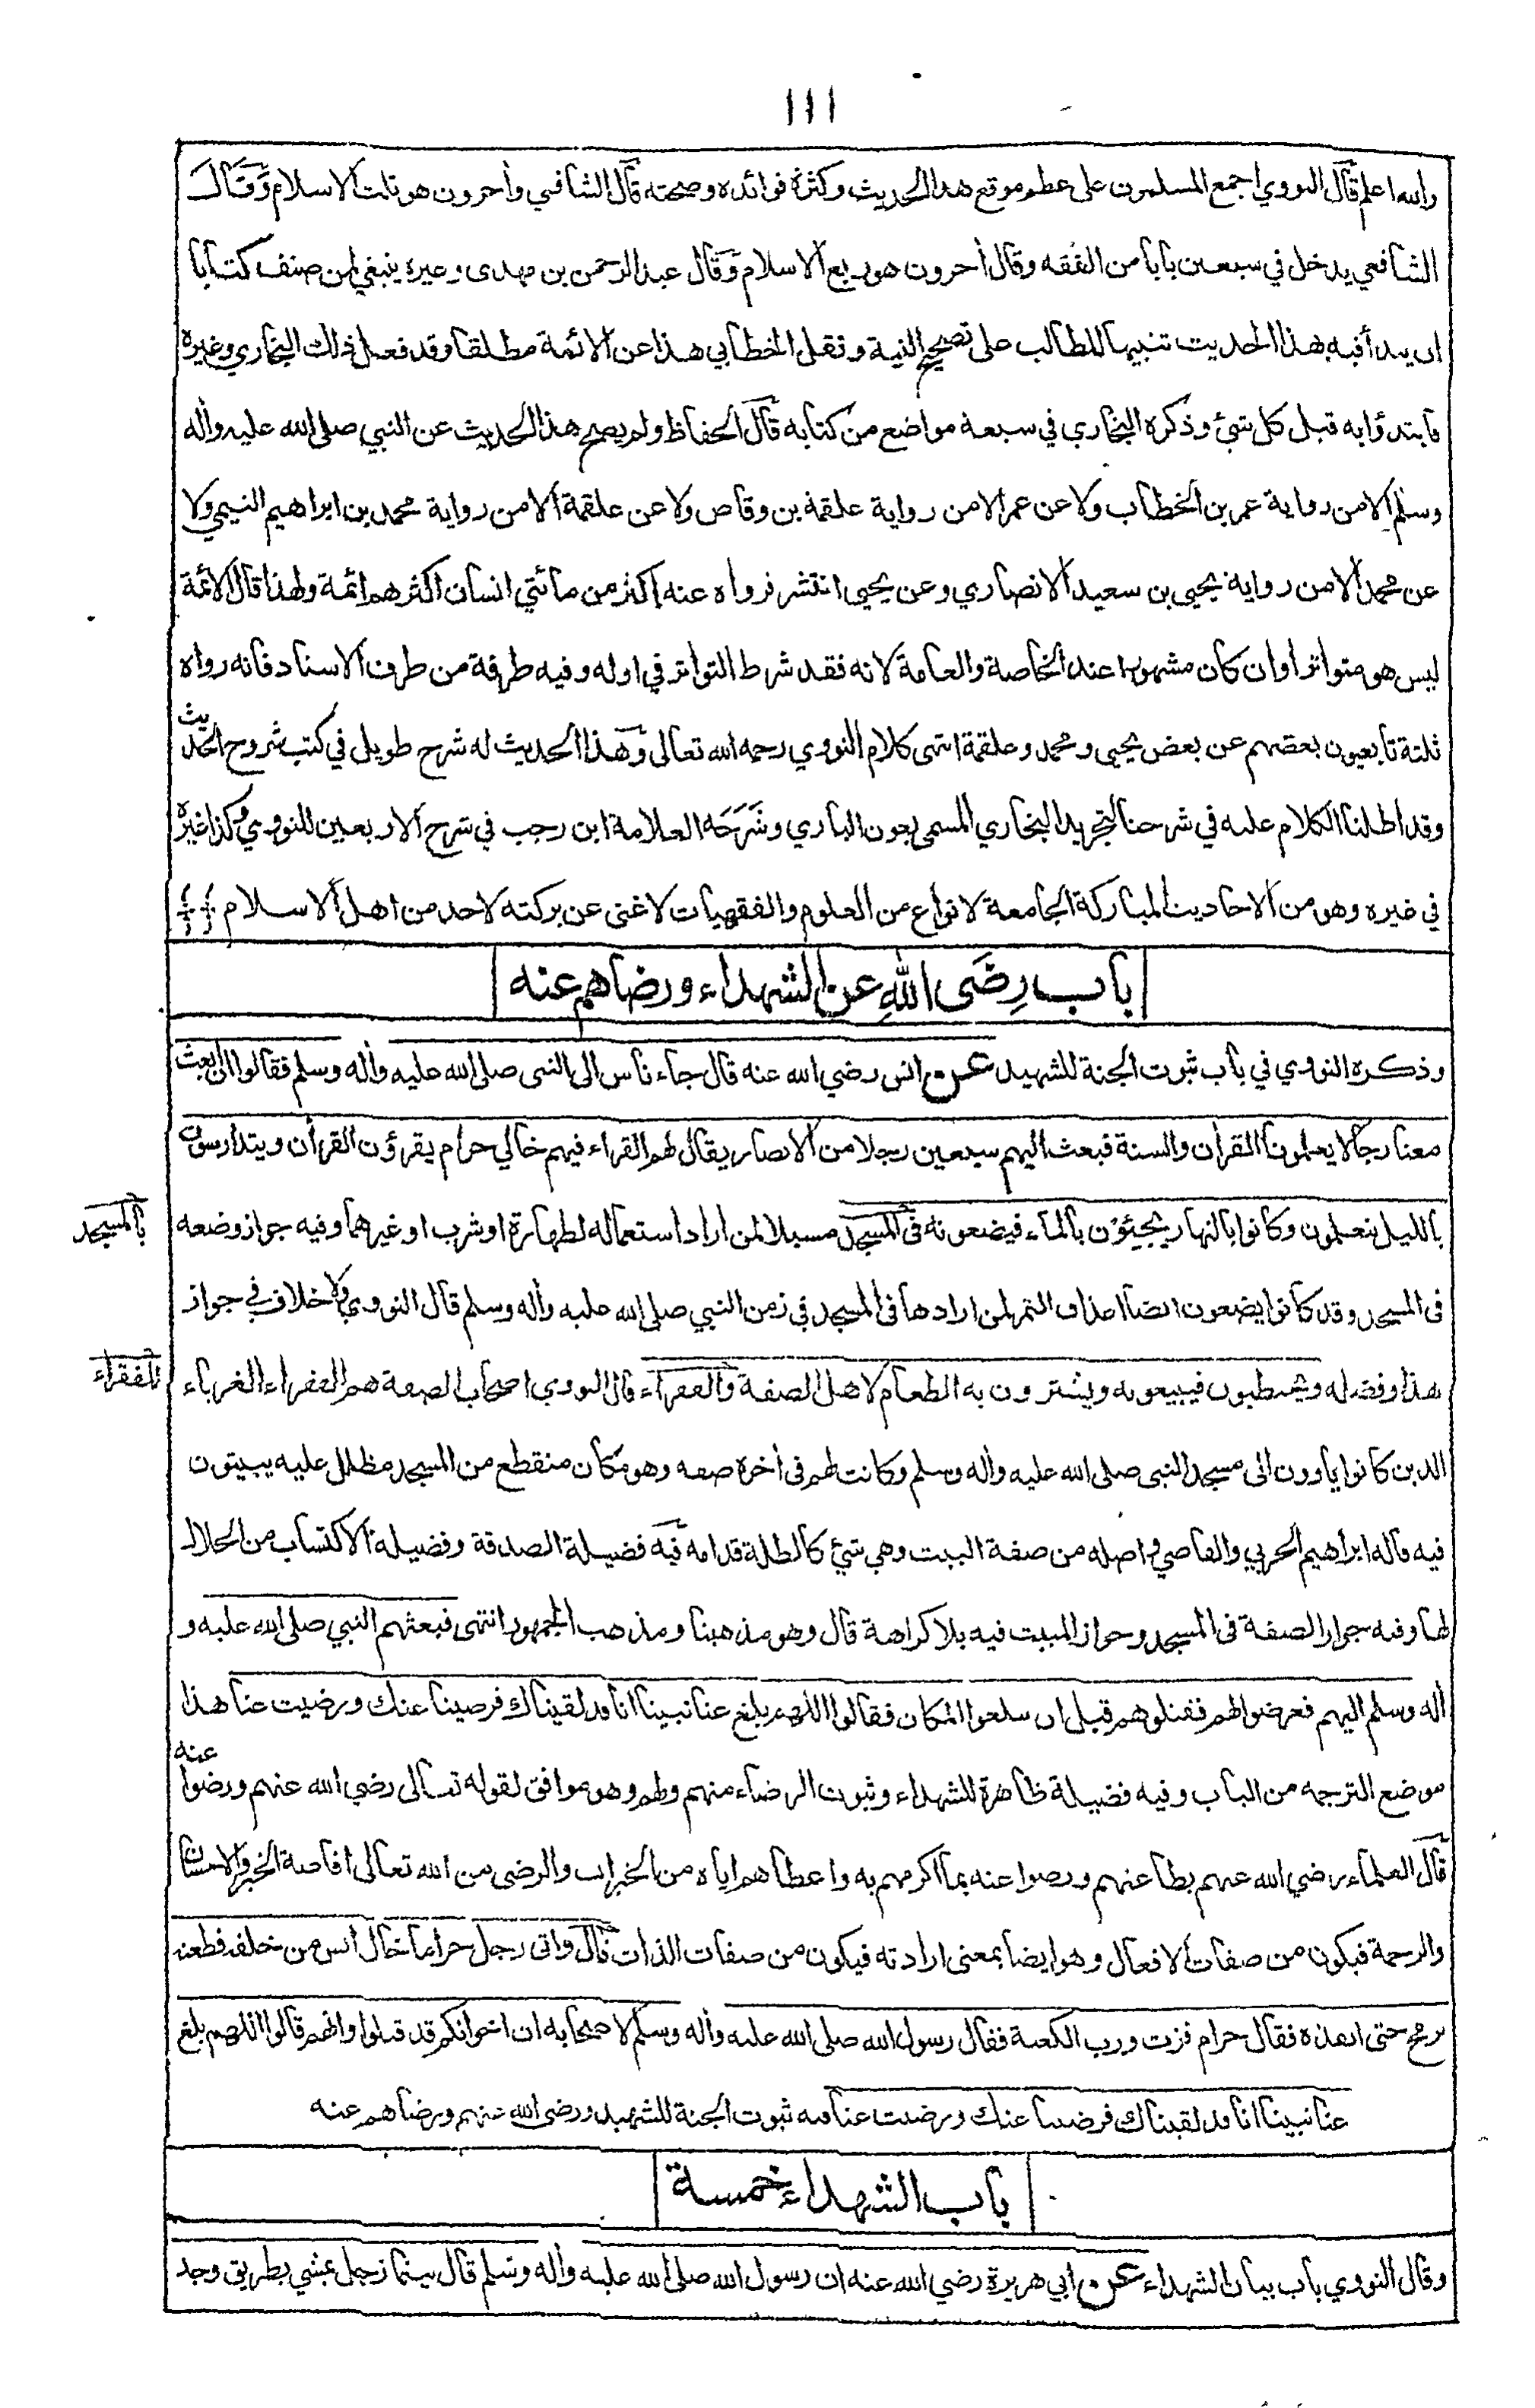 ١١١
والله اعلم قال النووي اجمع المسلمون على عظم موقع هذا الحديث وكثرة فوائده وصحته قال الشافعي وأخرون هو ثلث الاسلام وقال
الشافعي يدخل في سبعين بابا من الفقه وقال أخرون هو ربع الاسلام وقال عبد الرحمن بن مهدى وغيره ينبغي لمن صنف كتابا
ان يبدأ فيه بهذا الحديث تنبيها للطالب على تصحيح النية ونقل الخطابي هذا عن الائمة مطلقا وقد فعل ذلك البخاري وغيره
فابتدؤا به قبل كل شئ وذكره البخاري في سبعة مواضع من كتابه قال الحفاظ ولم يصح هذا الحديث عن النبي صلى الله عليه واله
وسلم الا من رواية عمر بن الخطاب ولا عن عمر الا من رواية علقمة بن وقاص ولا عن علقمة الا من رواية محمد بن ابراهيم التيمي ولا
عن محمد الا من رواية يحيى بن سعيد الانصاري وعن يحيى انتشر فرواه عنه اكثر من مائتي انسان اكثرهم ائمة ولهذا قال الائمة
ليس هو متواترا وان كان مشهورا عند الخاصة والعامة لانه فقد شرط التواتر في اوله وفيه طرفة من طرف الاسناد فانه رواه
ثلثة تابعيون بعضهم عن بعض يحيى ومحمد وعلقمة انتهى كلام النووي رحمه الله تعالى وهذا الحديث له شرح طويل في كتب شروح الحديث
وقد اطلنا الكلام عليه في شرحنا لتجريد البخاري المسمى بعون الباري وشرحه العلامة ابن رجب في شرح الاربعين للنووي وكذا غيره
في غيره وهو من الاحاديث المباركة الجامعة لانواع من العلوم والفقهيات لا غنى عن بركته لاحد من اهل الاسلام
باب رِضَى اللهِ عن الشهداء ورضاهم عنه
وذكره النووي في باب ثبوت الجنة للشهيد عن انس رضي الله عنه قال جاء ناس الى النبى صلى الله عليه وأله وسلم فقالوا ان ابعث
معنا رجالا يعلمونا القرأن والسنة فبعث اليهم سبعين رجلا من الانصار يقال لهم القراء فيهم خالي حرام يقرؤن القرأن ويتدارسون
بالليل يتعلمون وكانوا بالنهار يجيئون بالماء فيضعونه فى المسجد مسبلا لمن اراد استعماله لطهارة او شرب او غيرهما وفيه جواز وضعه
بالمسجد
فى المسجد وقد كانوا يضعون ايضا اعذاق التمر لمن ارادها فى المسجد في زمن النبي صلى الله عليه وأله وسلم قال النووي ولا خلاف في جواز
هذا وفضله ويحتطبون فيبيعونه ويشترون به الطعام لاهل الصفة والفقراء قال النووي اصحاب الصفة هم الفقراء الغرباء
للفقراء
الذين كانوا يأوون الى مسجد النبى صلى الله عليه وأله وسلم وكانت لهم فى أخره صفه وهو مكان منقطع من المسجد مظلل عليه يبيتون
فيه قاله ابراهيم الحربي والقاضي واصله من صفة البيت وهي شئ كالظلة قدامه فيه فضيلة الصدقة وفضيلة الاكتساب من الحلال
لها وفيه جواز الصفة فى المسجد وجواز المبيت فيه بلا كراهة قال وهو مذهبنا ومذهب الجمهور انتهى فبعثهم النبي صلى الله عليه و
أله وسلم اليهم فعرضوا لهم فقتلوهم قبل ان يبلغوا المكان فقالوا اللهم بلغ عنا نبينا انا قد لقيناك فرضينا عنك ورضيت عنا هذا
موضع الترجمه من الباب وفيه فضيلة ظاهرة للشهداء وثبوت الرضاء منهم ولهم وهو موافق لقوله تعالى رضي الله عنهم ورضوا عنه
قال العلماء رضي الله عنهم بطاعتهم ورضوا عنه بما اكرمهم به واعطاهم اياه من الخيرات والرضى من الله تعالى افاضة الخير والاحسان
والرحمة فيكون من صفات الافعال وهو ايضا بمعنى ارادته فيكون من صفات الذات قال واتى رجل حراما خال انس من خلفه فطعنه
برمح حتى انفذه فقال حرام فزت ورب الكعبة فقال رسول الله صلى الله عليه وأله وسلم لاصحابه ان اخوانكم قد قتلوا وانهم قالوا اللهم بلغ
عنا نبينا انا قد لقيناك فرضينا عنك ورضيت عنا فيه ثبوت الجنة للشهيد ورضى الله عنهم ورضاهم عنه
باب الشهداء خمسة
وقال النووي باب بيان الشهداء عن ابي هريرة رضي الله عنه ان رسول الله صلى الله عليه وأله وسلم قال بينما رجل يمشي بطريق وجد